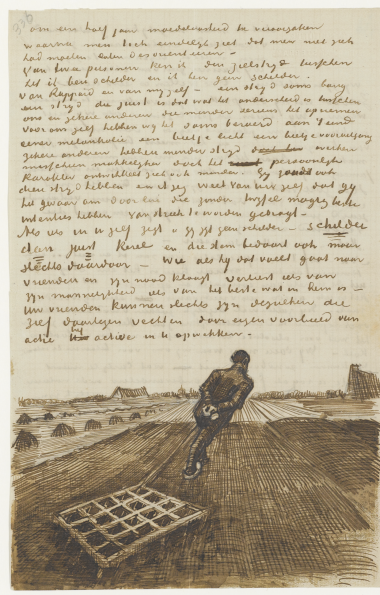 om een half jaar moedeloosheid te veroorzaken
waarna men toch eindelijk ziet dat men niet zich
had moeten laten desorienteeren –
Van twee personen ken ik den zielstrijd tusschen
het ik ben schilder en ik ben geen schilder.
Van Rappard en van mijzelf – een strijd soms bang
een strijd die juist is dat wat het onderscheid is tusschen
ons en zekere anderen die minder serieus het opnemen
voor ons zelf hebben wij het soms beroerd aan 't eind
eener melankolie een beetje licht een beetje vooruitgang
zekere anderen hebben minder strijd werken
misschien makkelijker doch het persoonlijk
karakter ontwikkelt zich ook minder. Gij zoudt ook
dien strijd hebben en ik zeg weet van Uw zelf dat gij
het gevaar door lui die zonder twijfel
intenties hebben van streek te worden gebragt.–
Als iets in U zelf zegt gij zijt geen schilder – schilder
dan juist kerel en die stem bedaart ook maar
slechts daardoor – Wie als hij dat voelt gaat naar
vrienden en zijn nood klaagt verliest iets van
zijn mannelijkheid iets van het beste wat in hem is –
Uw vrienden kunnen slechts zijn dezulken die
zelf daartegen vechten door eigen voorbeeld van
actie actie in U opwekken.